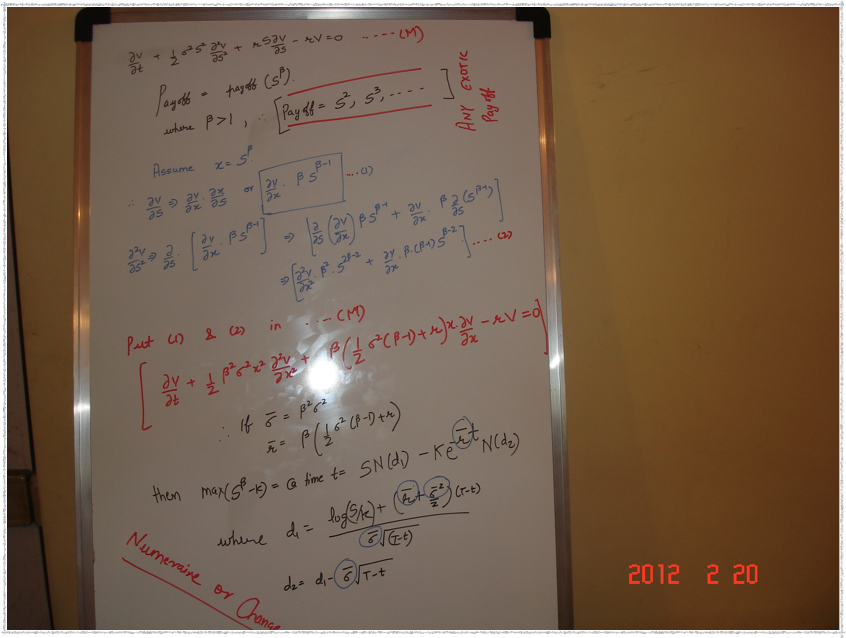 ∂V/∂t + 1/2 σ²S² ∂²V/∂S² + rS ∂V/∂S - rV = 0 ..... (M)
Payoff = payoff (S^β).
where β > 1, ∴ [Payoff = S², S³, ....]
ANY EXOTIC
Payoff
Assume x = S^β.
∴ ∂V/∂S ⇒ ∂V/∂x · ∂x/∂S or [∂V/∂x · β S^(β-1)] ....(1)
∂²V/∂S² ⇒ ∂/∂S · [∂V/∂x · β S^(β-1)] ⇒ [∂/∂S (∂V/∂x) β S^(β-1) + ∂V/∂x · β ∂/∂S (S^(β-1))]
⇒ [∂²V/∂x² · β² · S^(2β-2) + ∂V/∂x · β·(β-1) S^(β-2)] ....(2)
Put (1) & (2) in .... (M)
[∂V/∂t + 1/2 β²σ²x² ∂²V/∂x² + β(1/2 σ²(β-1) + r) x · ∂V/∂x - rV = 0]
∴ If σ̄ = β²σ²
r̄ = β(1/2 σ²(β-1) + r)
then max(S^β - K) = @ time t = SN(d₁) - Ke^(-r̄t) N(d₂)
where d₁ = (log(S/K) + (r̄ + σ̄²/2)(T-t)) / (σ̄√(T-t))
d₂ = d₁ - σ̄√(T-t)
Numeraire or Change
2012 2 20